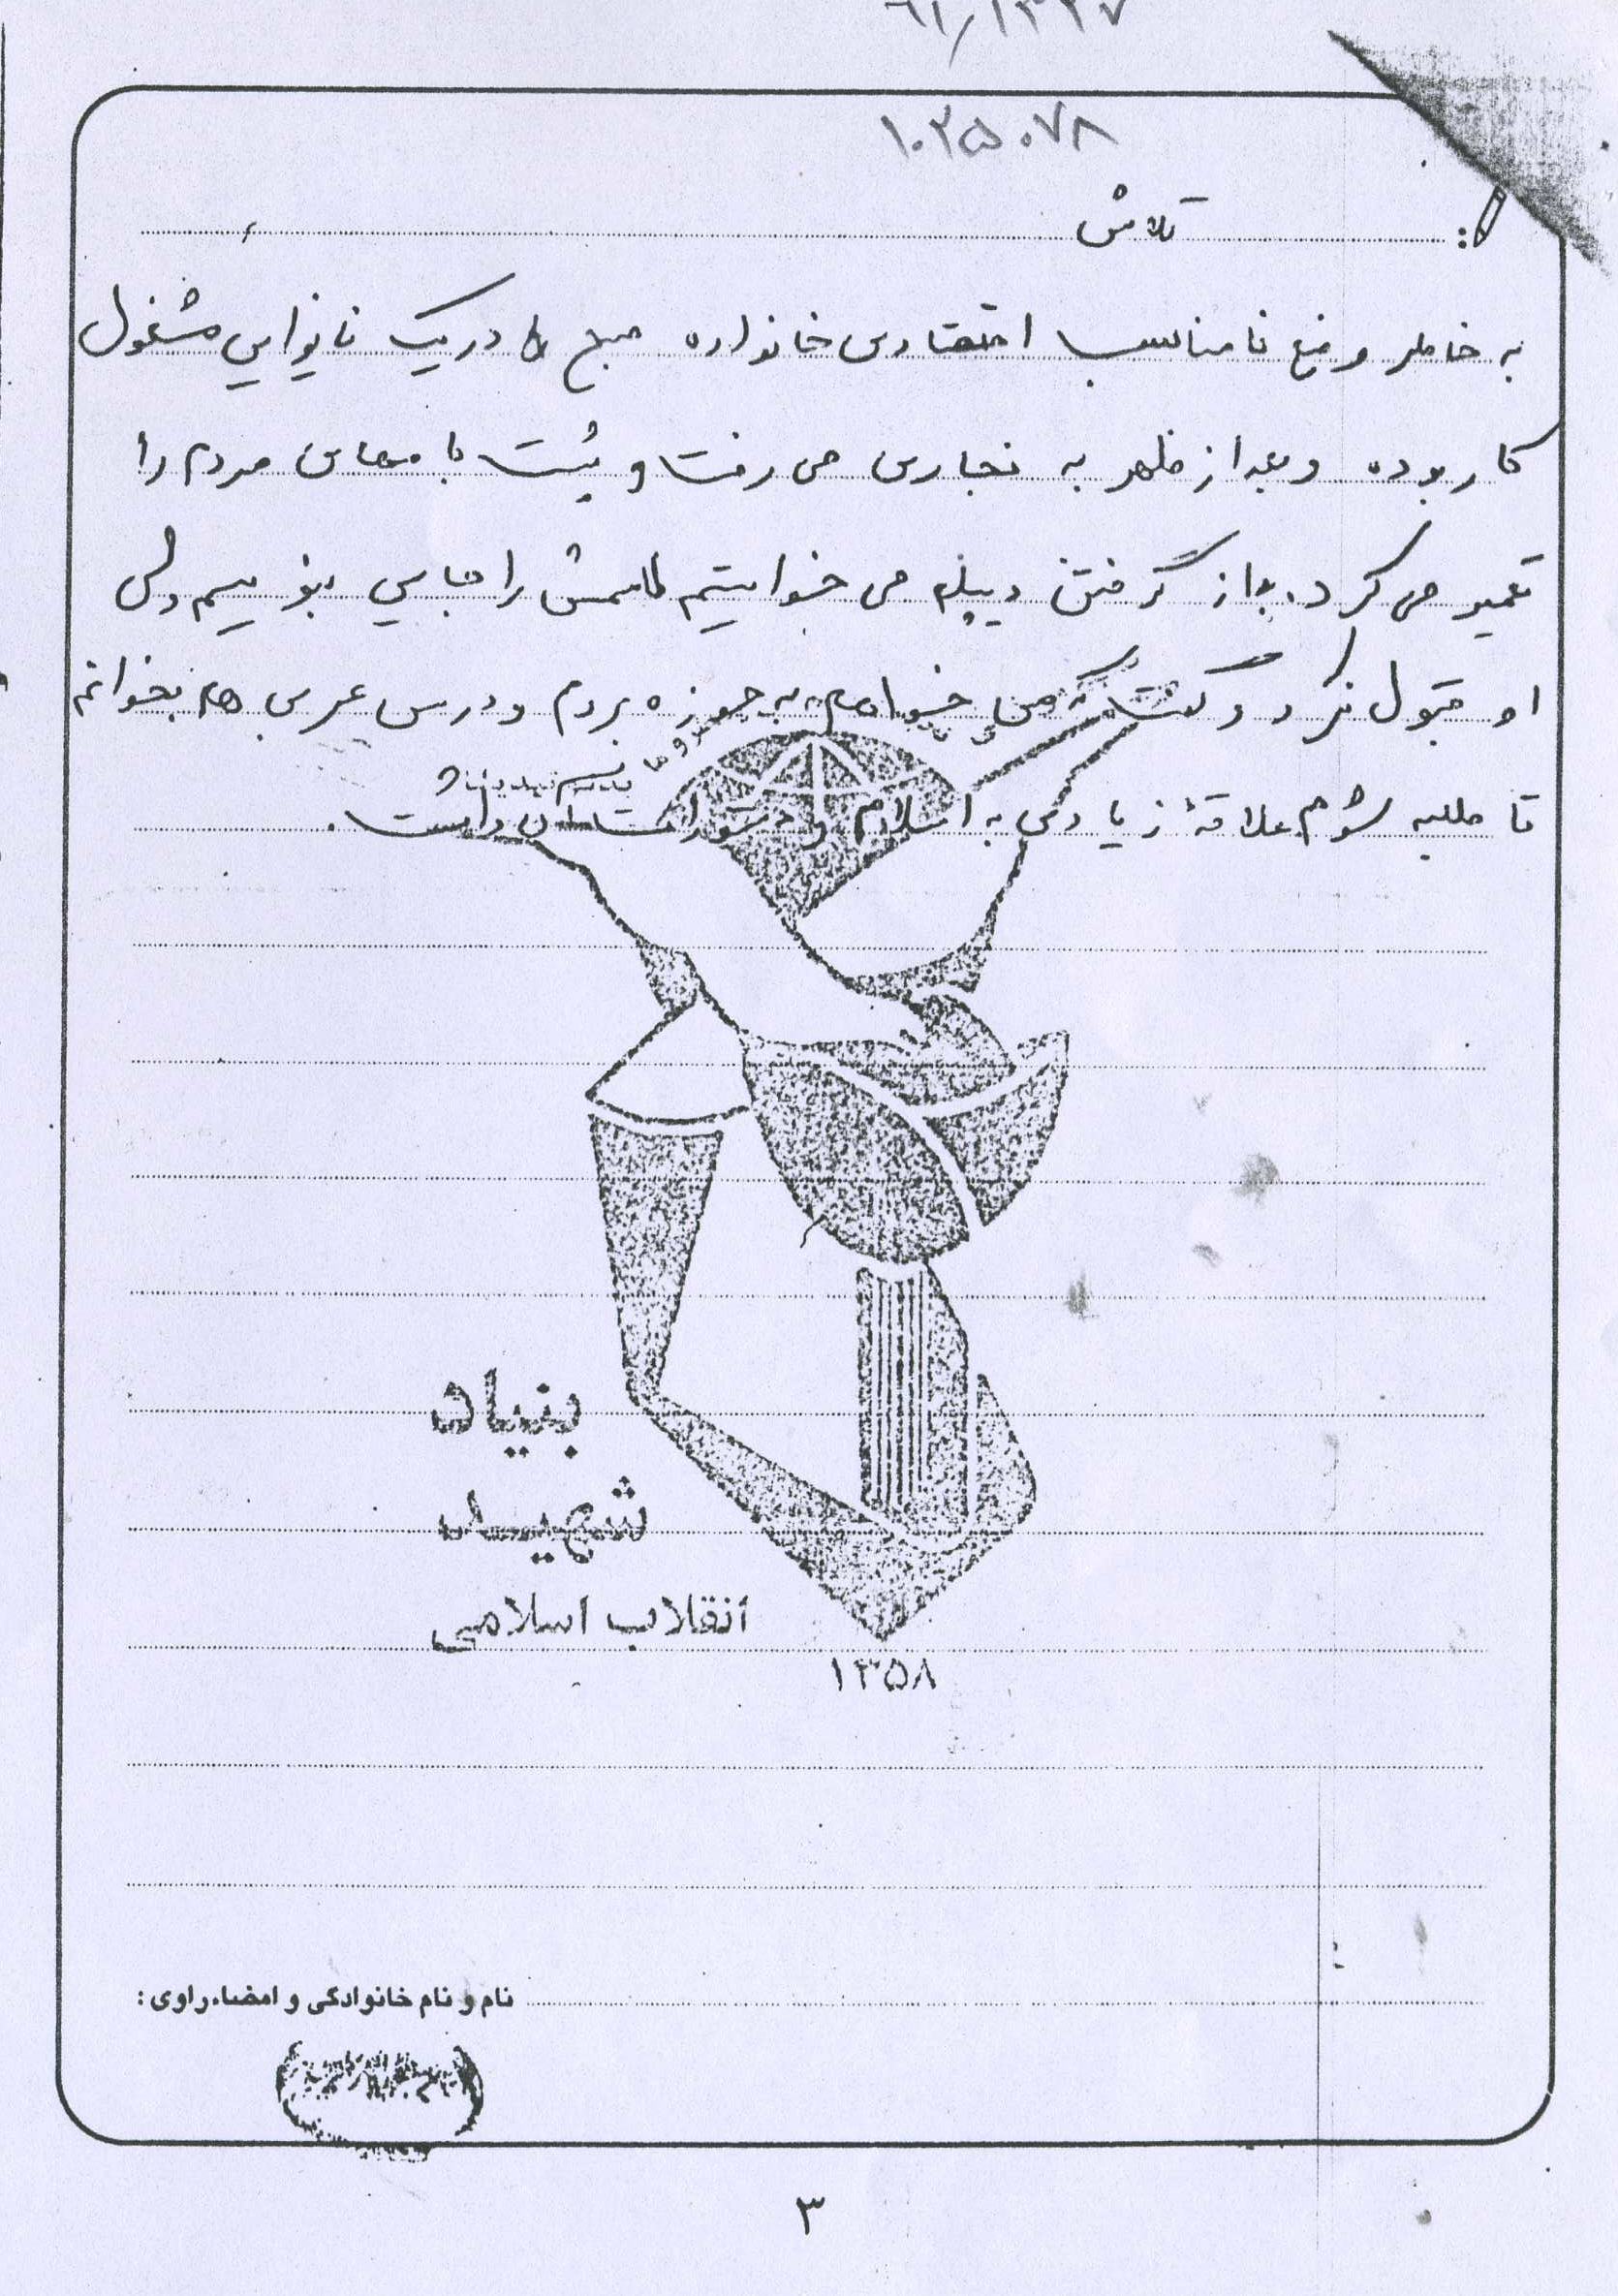 ۱۰۲۵۰۷۸
: تلاش
به خاطر وضع نامناسب اقتصادی خانواده صبح ها در یک نانوایی مشغول
کار بوده و بعد از ظهر به نجاری می رفت و پشت بام های مردم را
تعمیر می کرد. بعد از گرفتن دیپلم می خواستیم اسمش را جایی بنویسیم ولی
او قبول نکرد و گفت که می خواهم به حوزه بروم و درس عربی هم بخوانم
تا طلبه شوم علاقهٔ زیادی به اسلام و دستوراتشان داشت.
بنیاد
شهید
انقلاب اسلامی
۱۳۵۸
نام و نام خانوادگی و امضاء راوی:
۳